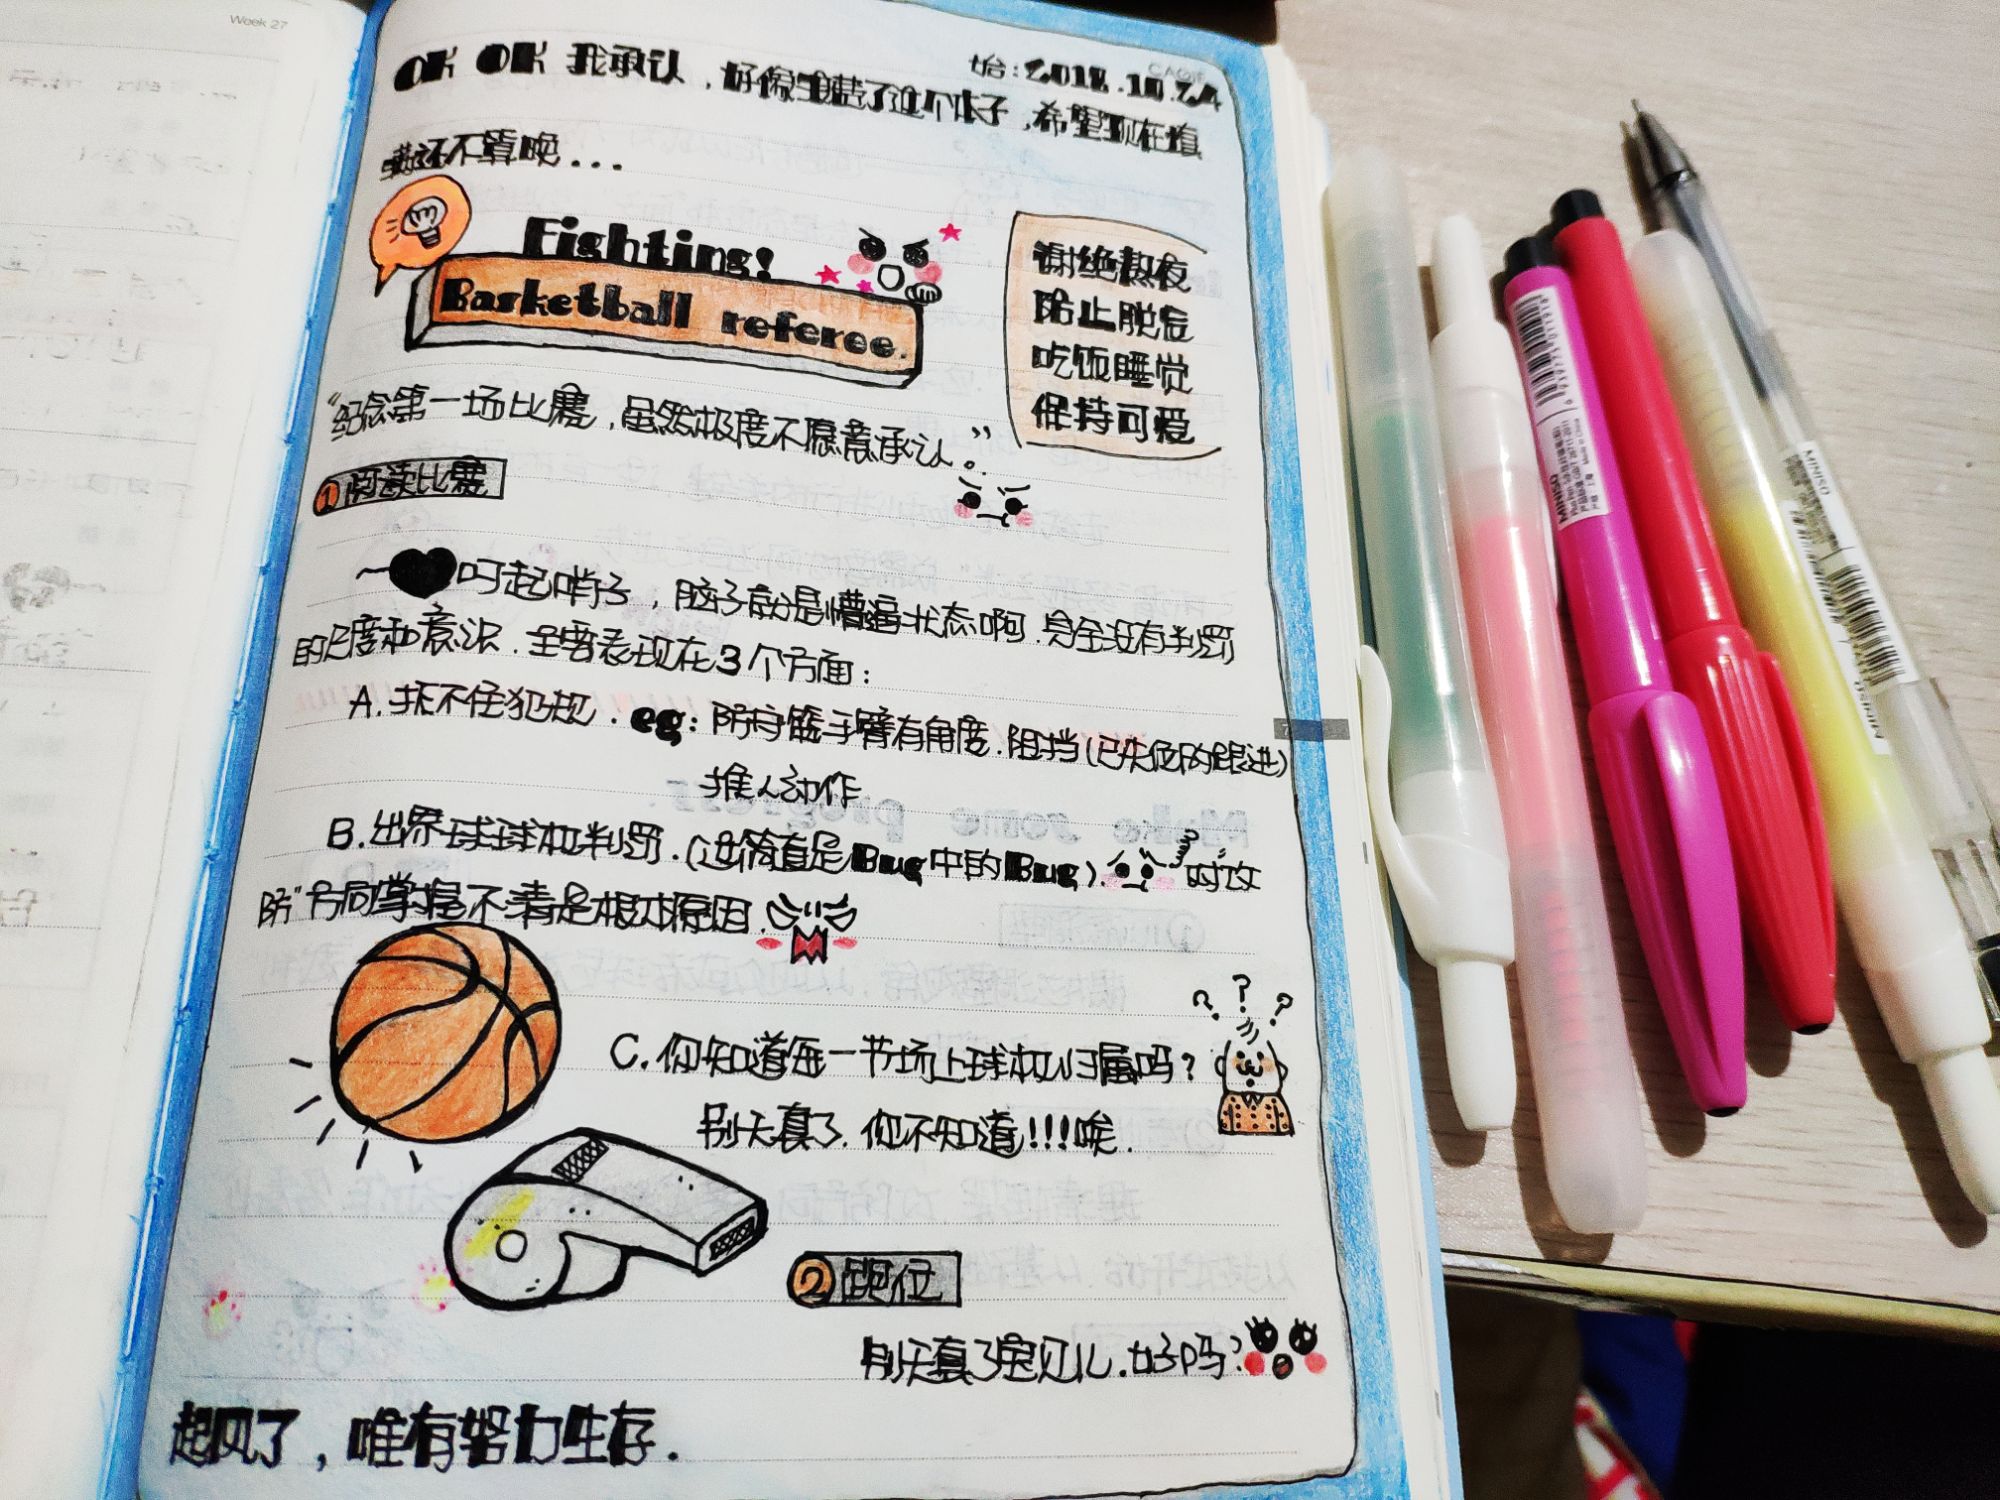 Week 27
始:2018.10.24
OK OK 我承认,好像是蓄谋了这个帖子,希望现在填
喃还不算晚...
Fighting!
Basketball referee.
谢绝熬夜
防止脱发
吃饭睡觉
保持可爱
“纪念第一场比赛,虽然极度不愿意承认。”
① 阅读比赛
叼起哨子,脑子就是懵逼状态啊.完全没有判罚
的尺度和意识.主要表现在3个方面:
A.抓不住犯规.eg:防守篮手臂有角度.阻挡(已失位的跟进)
推人动作.
B.出界球球权判罚.(这简直是Bug中的Bug).“对攻
防”方向掌握不清是根本原因.
C.你知道每一节场上球权归属吗?
别天真了.你不知道!!!唉.
② 跑位
别天真了宝贝儿.好吗?
起风了,唯有努力生存.
MINISO
MINISO
MINISO